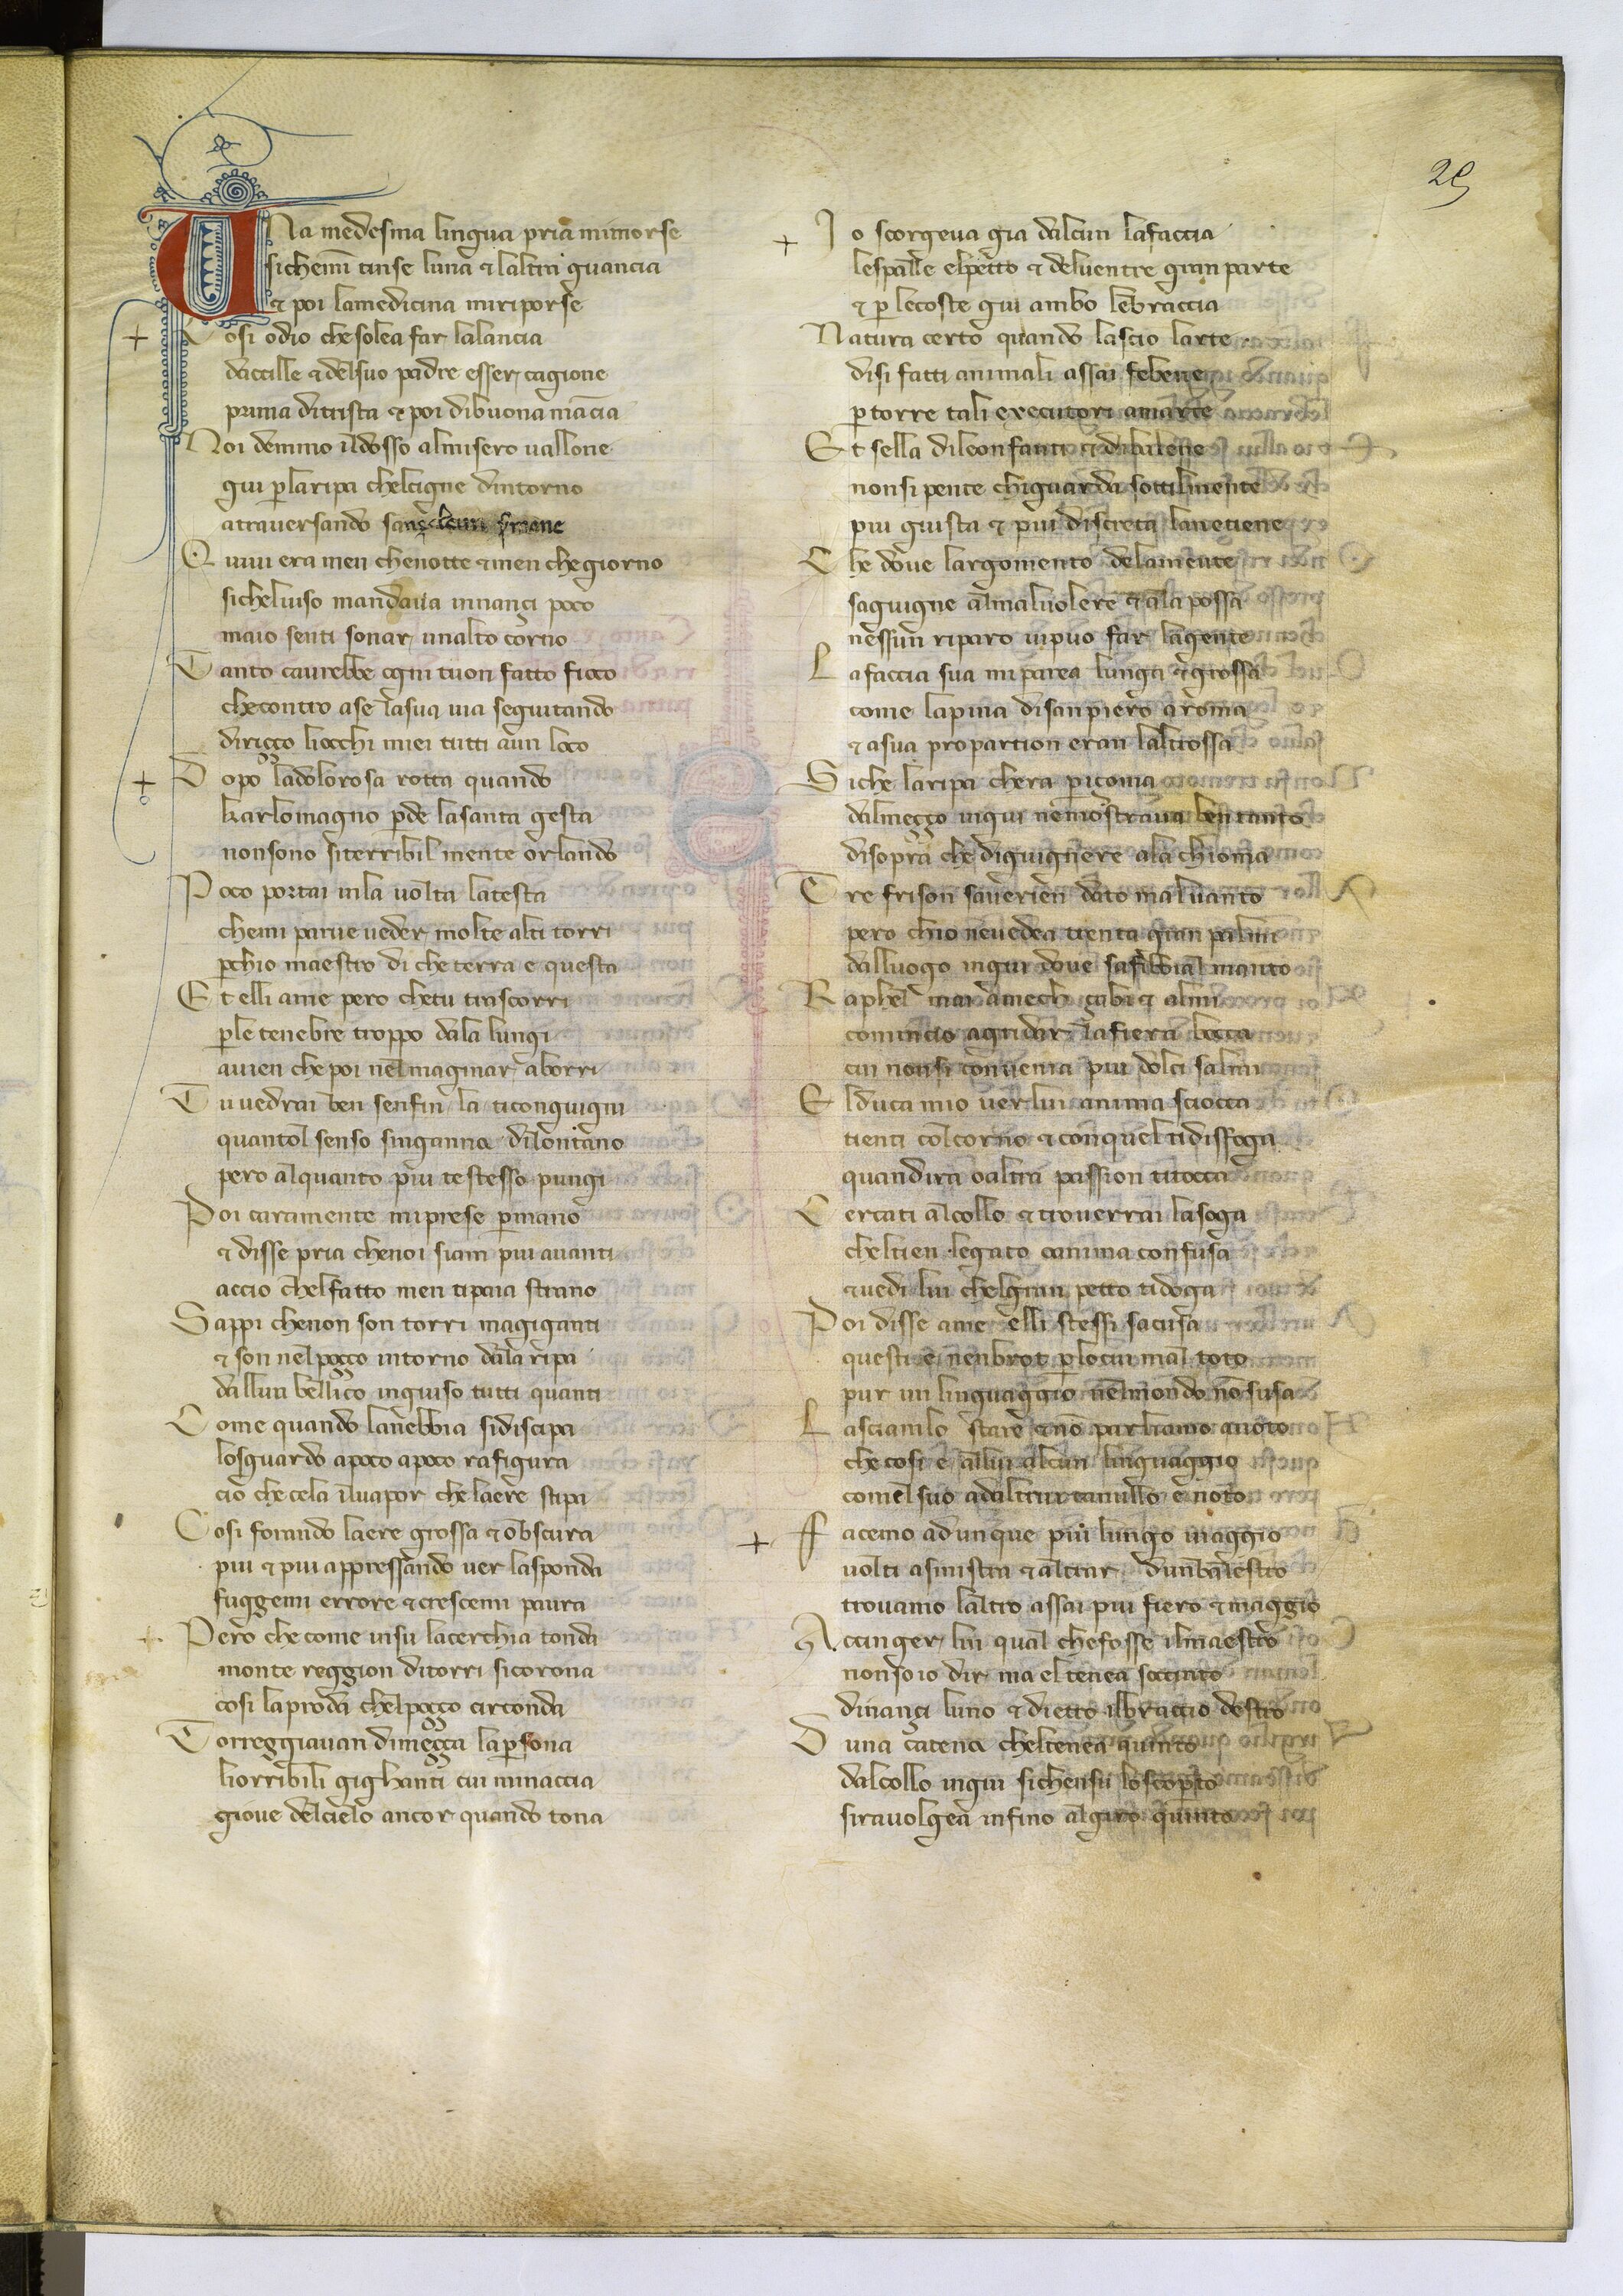 25
UNa medesma lingua pria mimorse
sichemi tinse luna & laltra guancia
& poi lamedicina miriporse
Cosi odio che solea far lalancia
dacchille & delsuo padre esser cagione
prima ditrista & poi dibuona mancia
Noi demmo ildosso almisero uallone
qui p laripa chelcigne dintorno
atraversando sanza
Quiui era men chenotte & men chegiorno
sichelviso mandaua innanzi poco
maio senti sonar unalto corno
Tanto caurebbe ogni tuon fatto fioco
checontro ase lasua uia seguitando
dirizzo liocchi miei tutti aun loco
Dopo ladolorosa rotta quando
karlomagno pde lasanta gesta
nonsono siterribil mente orlando
Poco portai inla uolta latesta
chemi parue ueder molte alti torri
pchio maestro di che terra e questa
Et elli ame pero chetu trascorri
ple tenebre troppo dala lungi
auien che poi nelmaginar aborri
Tu uedrai ben senfin la ticongiugni
quantol senso singanna dilontano
pero alquanto piu testesso pungi
Poi caramente miprese pmano
& disse pria chenoi siam piu auanti
accio chelfatto men tipaia strano
Sappi chenon son torri magiganti
& son nelpozzo intorno dala ripa
dallun bellico ingiuso tutti quanti
Come quando lanebbia sidiscipa
losguardo apoco apoco rafigura
cio che cela iluapor che laere stipa
Cosi forando laere grossa & obscura
piu & piu appressando uer lasponda
fuggemi errore & crescemi paura
Pero che come insu lacerchia tonda
monte reggion ditorri sicorona
cosi laproda chelpozzo circonda
Torreggiauan dimezza lapsona
liorribili gighanti cui minaccia
gioue delcielo ancor quando tona
Io scorgeua gia dalcun lafaccia
lespalle elpetto & deluentre gran parte
& p lecoste giu ambo lebraccia
Natura certo quando lascio larte
disi fatti animali assai febene
p torre tali executori amarte
Et sella dileonfanti & dibalene
nonsi pente chiguarda sottilmente
piu giusta & piu discreta lanetiene
Che doue largomento delamente
sagiugne almaluolere & ala possa
nessun riparo uipuo far lagente
Lafaccia sua mi parea lunga & grossa
come lapina disanpiero aroma
& asua propartion eran laltrossa
Siche laripa chera pizoma
dalmezzo ingiu nemostraua ben tanto
disopra che digiugnere ala chioma
Tre frison saverien dato maluanto
pero chio neuedea trenta gran palmi
dalluogo ingiu doue saffibbial manto
Raphel mai amech zabi & almi
comincio agridar lafiera bocca
cui nonsi conuenia piu dolci salmi
Elduca mio uerlui anima sciocca
tienti colcorno & conquel tidisfoga
quandira oaltra passion titocca
Cercati alcollo & trouerrai lasoga
cheltien legato oanima confusa
& uedi lui chelgran petto tidoga
Poi disse ame elli stessi sacusa
questi e nenbrot p locui mal toto
pur un linguaggio nelmondo no susa
Lascianlo stare & no parliamo auoto
che cosi e allui alcun linguaggio
comel suo adaltrui canullo e noto
Facemo adunque piu lungo uiaggio
uolti asinistra & altrar dunbalestro
trouamo laltro assai piu fiero & maggio
Accinger lui qual chefosse ilmaestro
nonso io dir ma el tenea soccinto
dinanzi luno & dietro ilbraccio destro
Duna catena cheltenea auinto
dalcollo ingiu sichensu loscopto
sirauolgea infino algiro quinto